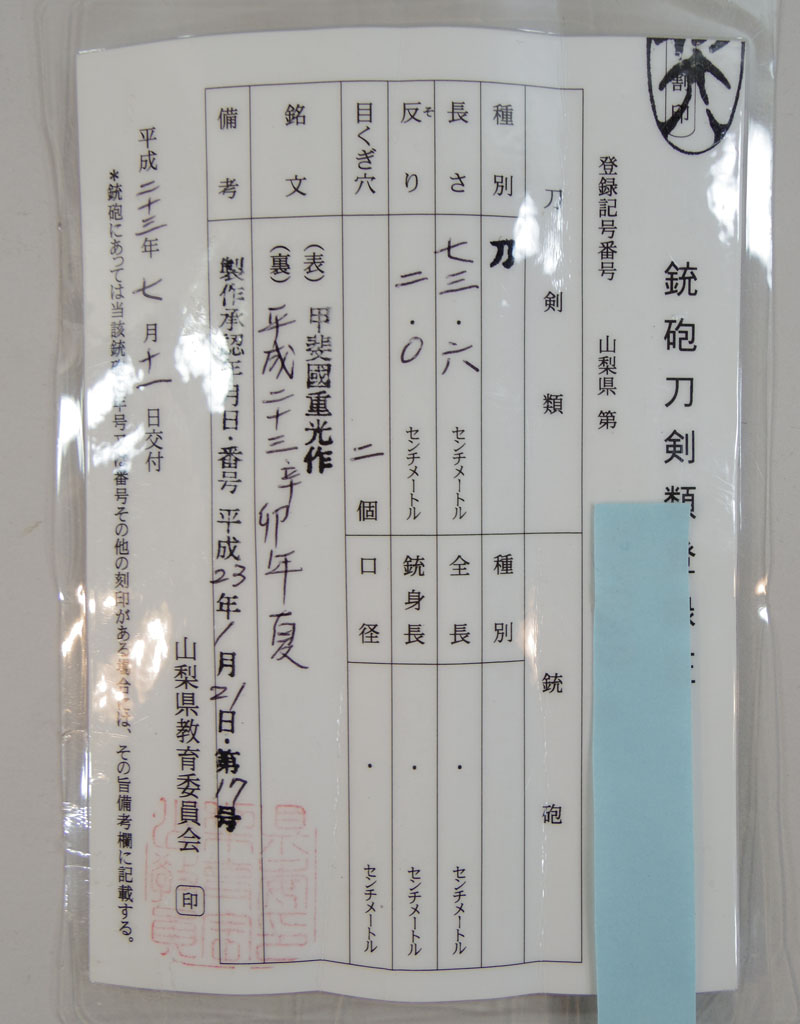 割印
銃砲刀剣類登録証
登録記号番号 山梨県 第
刀剣類
銃砲
種別 刀
種別
長さ 七三・六 センチメートル
全長 ・ センチメートル
反り そ 二・〇 センチメートル
銃身長 ・ センチメートル
目くぎ穴 二 個
口径 ・ センチメートル
銘文 (表) 甲斐國重光作
(裏) 平成二十三辛卯年夏
備考 製作承認年月日・番号 平成23年1月21日・第17号
山梨県教育委員会 印
平成二十三年七月十一日交付
*銃砲にあっては当該銃砲の番号その他の刻印がある場合には、その旨備考欄に記載する。